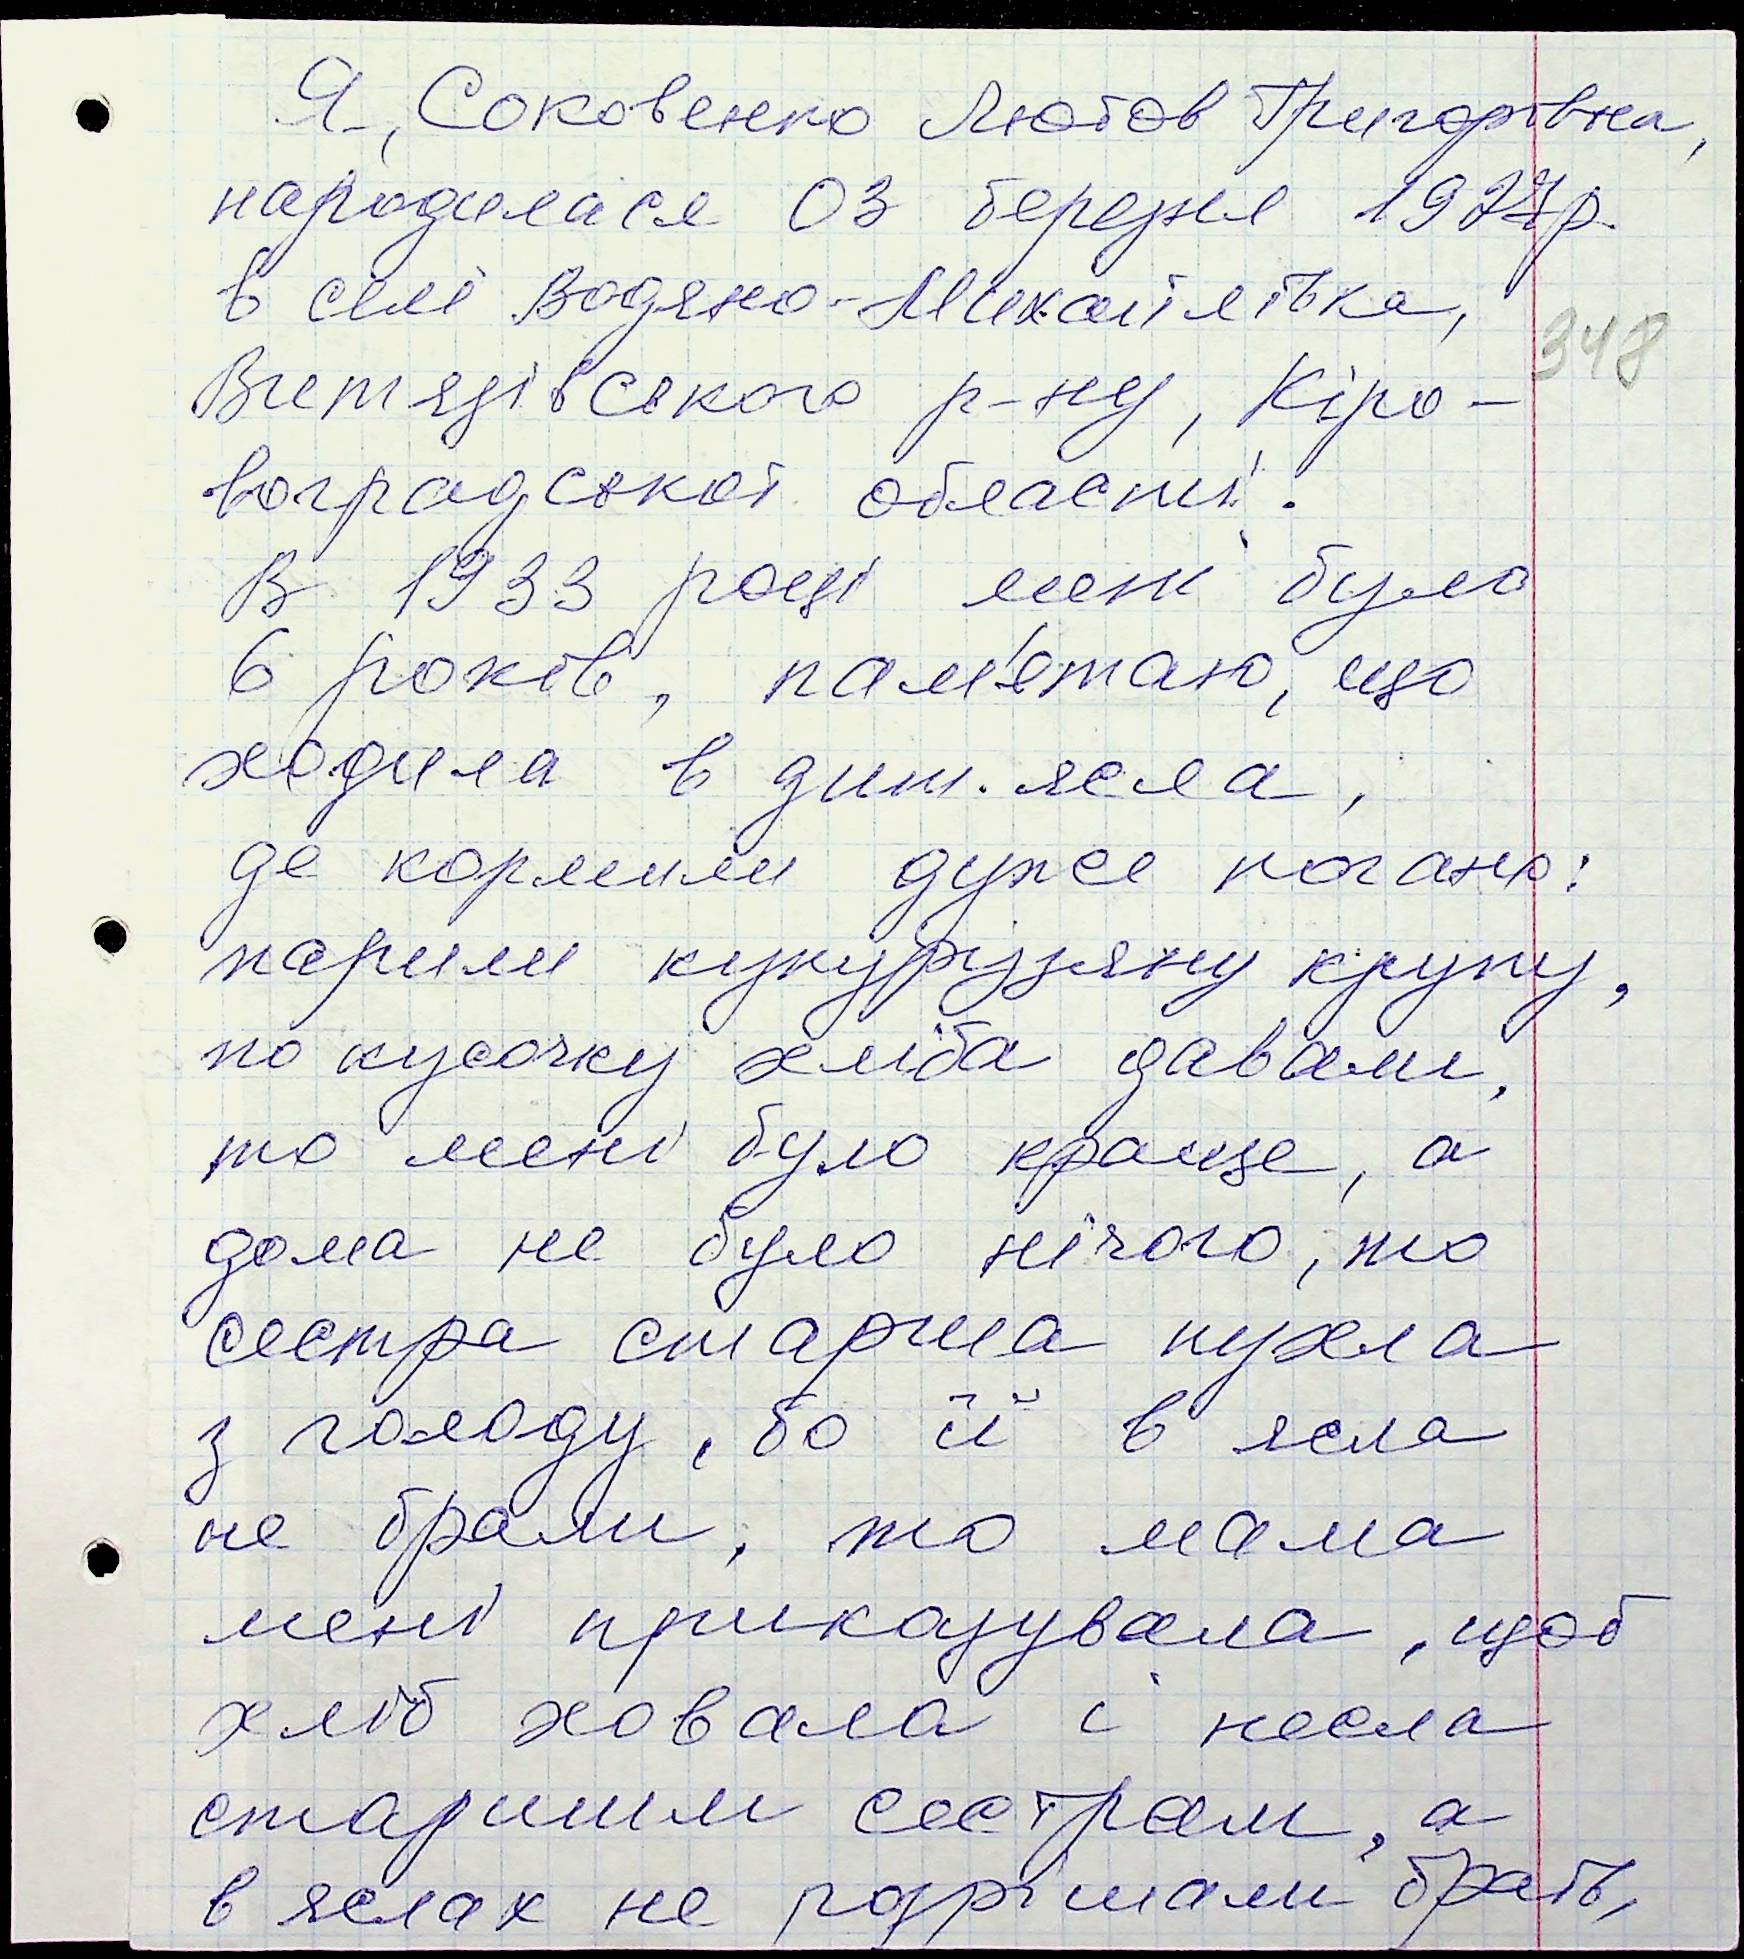 Я, Соковенко Любов Григорівна,
народилася 03 березня 1927р.
в селі Водяно-Михайлівка,
Витязівського р-ну, Кіро-
воградської області.
348
В 1933 році мені було
6 років, пам'ятаю, що
ходила в дит. ясла,
де кормили дуже погано:
парили кукурузяну крупу,
по кусочку хліба давали,
то мені було краще, а
дома не було нічого, то
сестра старша пухла
з голоду, бо її в ясла
не брали, то мама
мені приказувала, щоб
хліб ховала і несла
старшим сестрам, а
в яслах не розрішали брать,